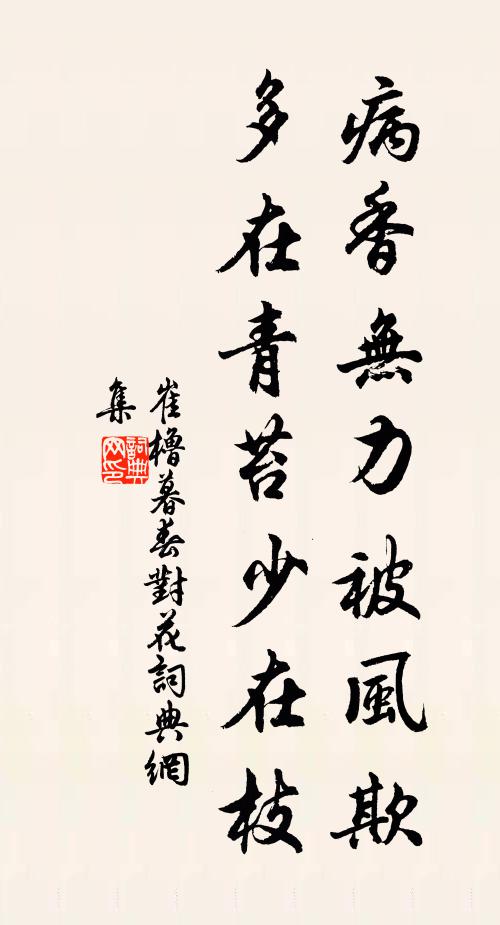 病香無力被風欺
多在青苔少在枝
崔櫓暮春對花詞典網
集
詞典网印